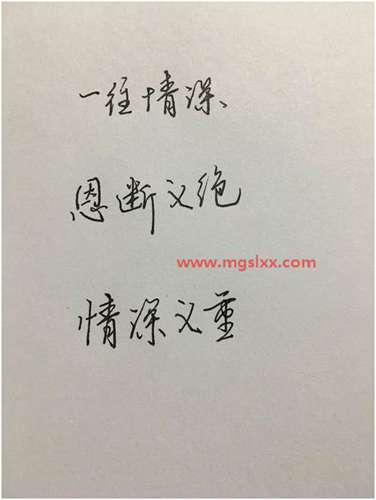 一往情深
恩断义绝
www.mgslxx.com
情深义重